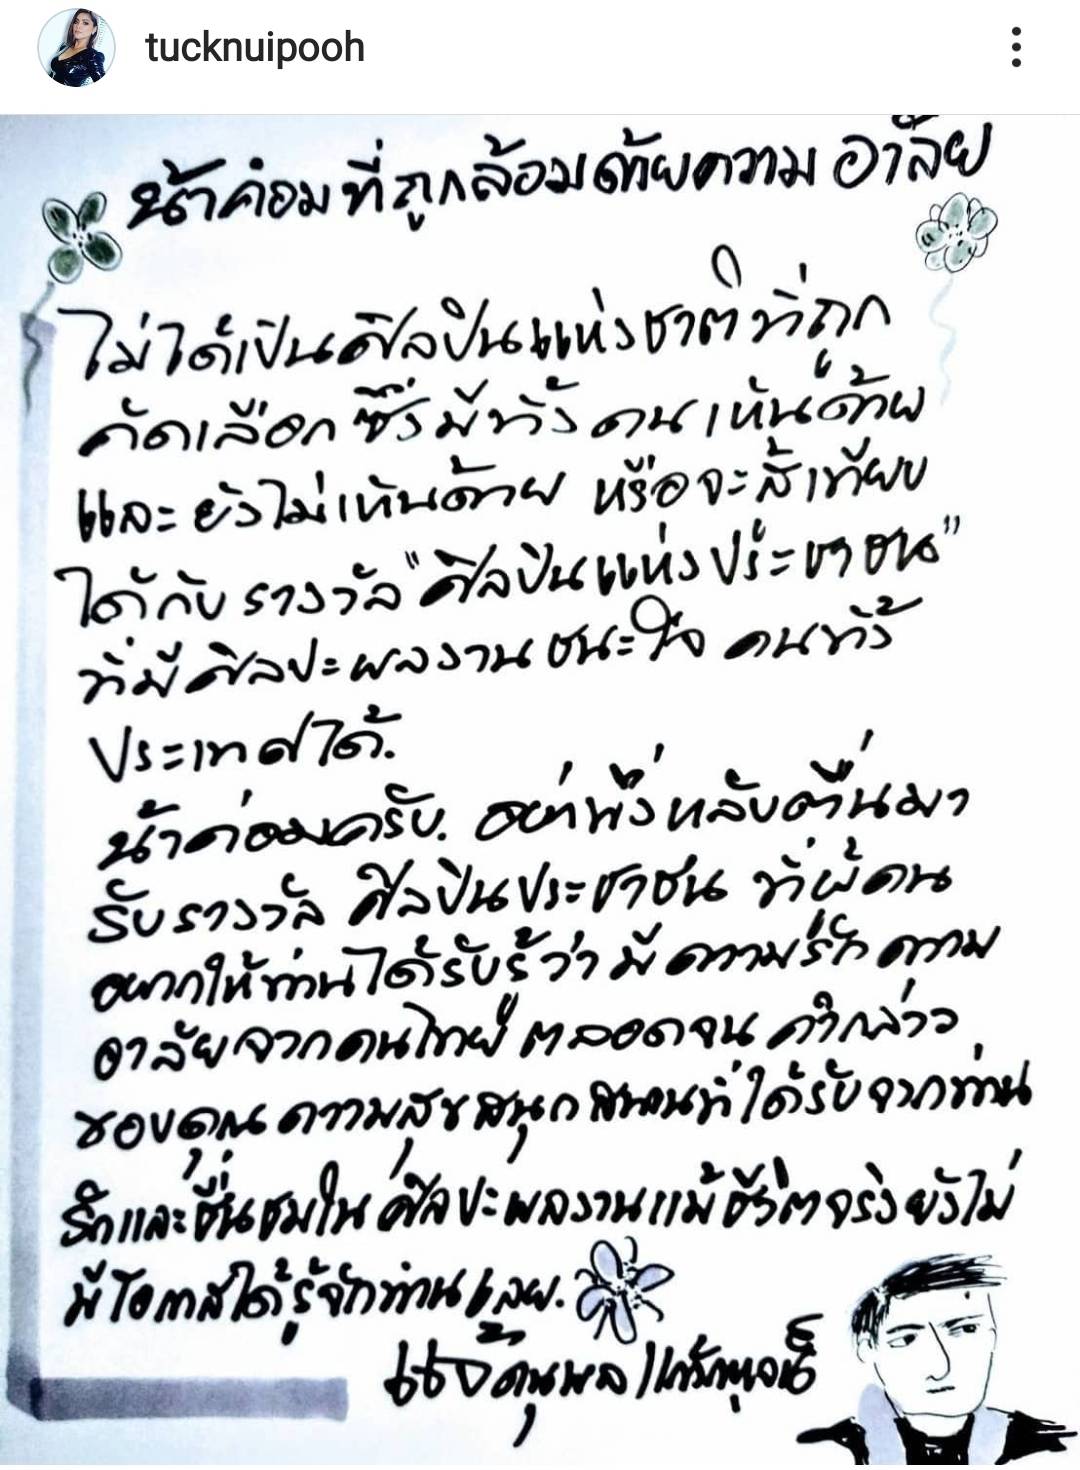 tucknuipooh
น้าค่อมที่ถูกล้อมด้วยความอาลัย
ไม่ได้เป็นศิลปินแห่งชาติที่ถูก
คัดเลือก ซึ่งมีทั้ง คนเห็นด้วย
และ ยังไม่เห็นด้วย หรือจะสู้เทียบ
ได้กับ รางวัล "ศิลปินแห่งประชาชน"
ที่มีศิลปะผลงานชนะใจ คนทั้ง
ประเทศได้.
น้าค่อมครับ. อย่าพึ่งหลับตื่นมา
รับรางวัล ศิลปินประชาชน ที่ผู้คน
อยากให้ท่านได้รับรู้ว่า มีความรัก ความ
อาลัยจากคนไทย ตลอดจน คำกล่าว
ขอบคุณ ความสุขสนุกสนานที่ได้รับจากท่าน
รักและชื่นชมใน ศิลปะผลงานแม้ชีวิตจริงยังไม่
มีโอกาสได้รู้จักท่านเลย.